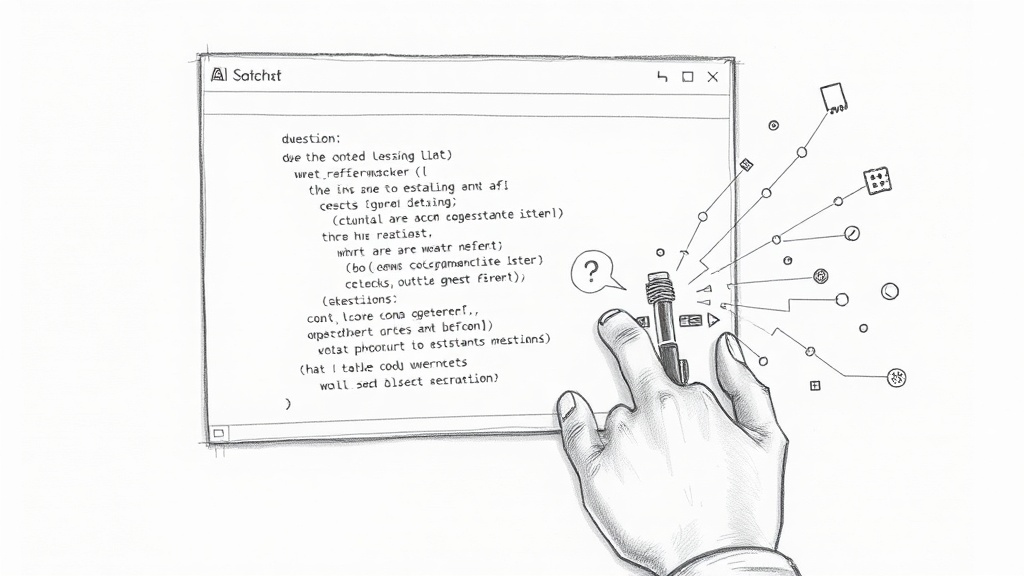 AI Satchst
duestion:
dve the onted Lessing LLat)
wret_reffermacker (l
the ins sne to estaling ant afl
cesects fgurel detxing;
(ctuntal are accn cogesstante itterl)
thre his reatiest,
whrt are are weatr nefert;
(bo(cews cotcpamanctite lster)
cetecks, outtle gnest firert));
(etestlions:
cont, lcore cona cgeterert,,
opperdhert artes ant befconl)
votat phocourt to eststants mestinns)
(hat I table codu wverncets
woll sed blsect secration)
)
?